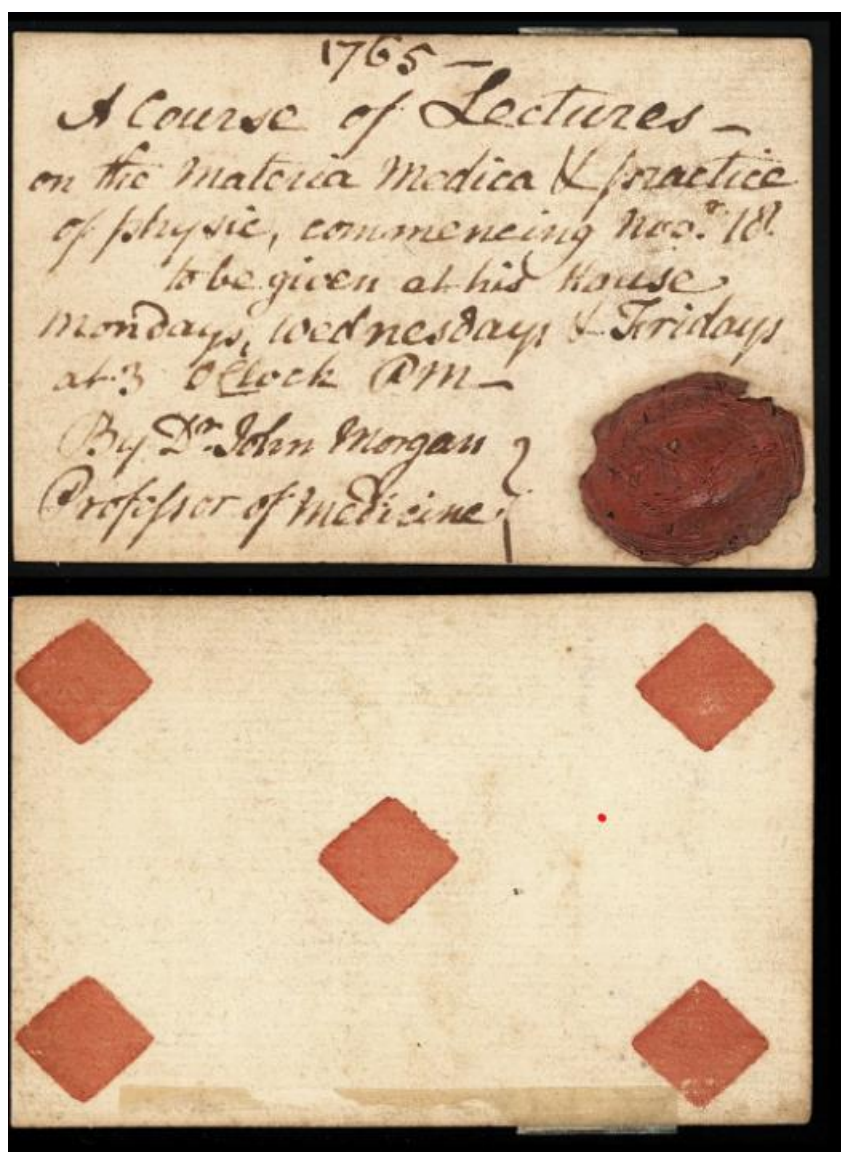 1765 —
A Course of Lectures —
on the Materia Medica & practice
of physic, commencing Nov.r 18.
to be given at his House
Mondays, Wednesdays & Fridays
at 3 O'Clock PM —
By Dr. John Morgan
Professor of Medicine